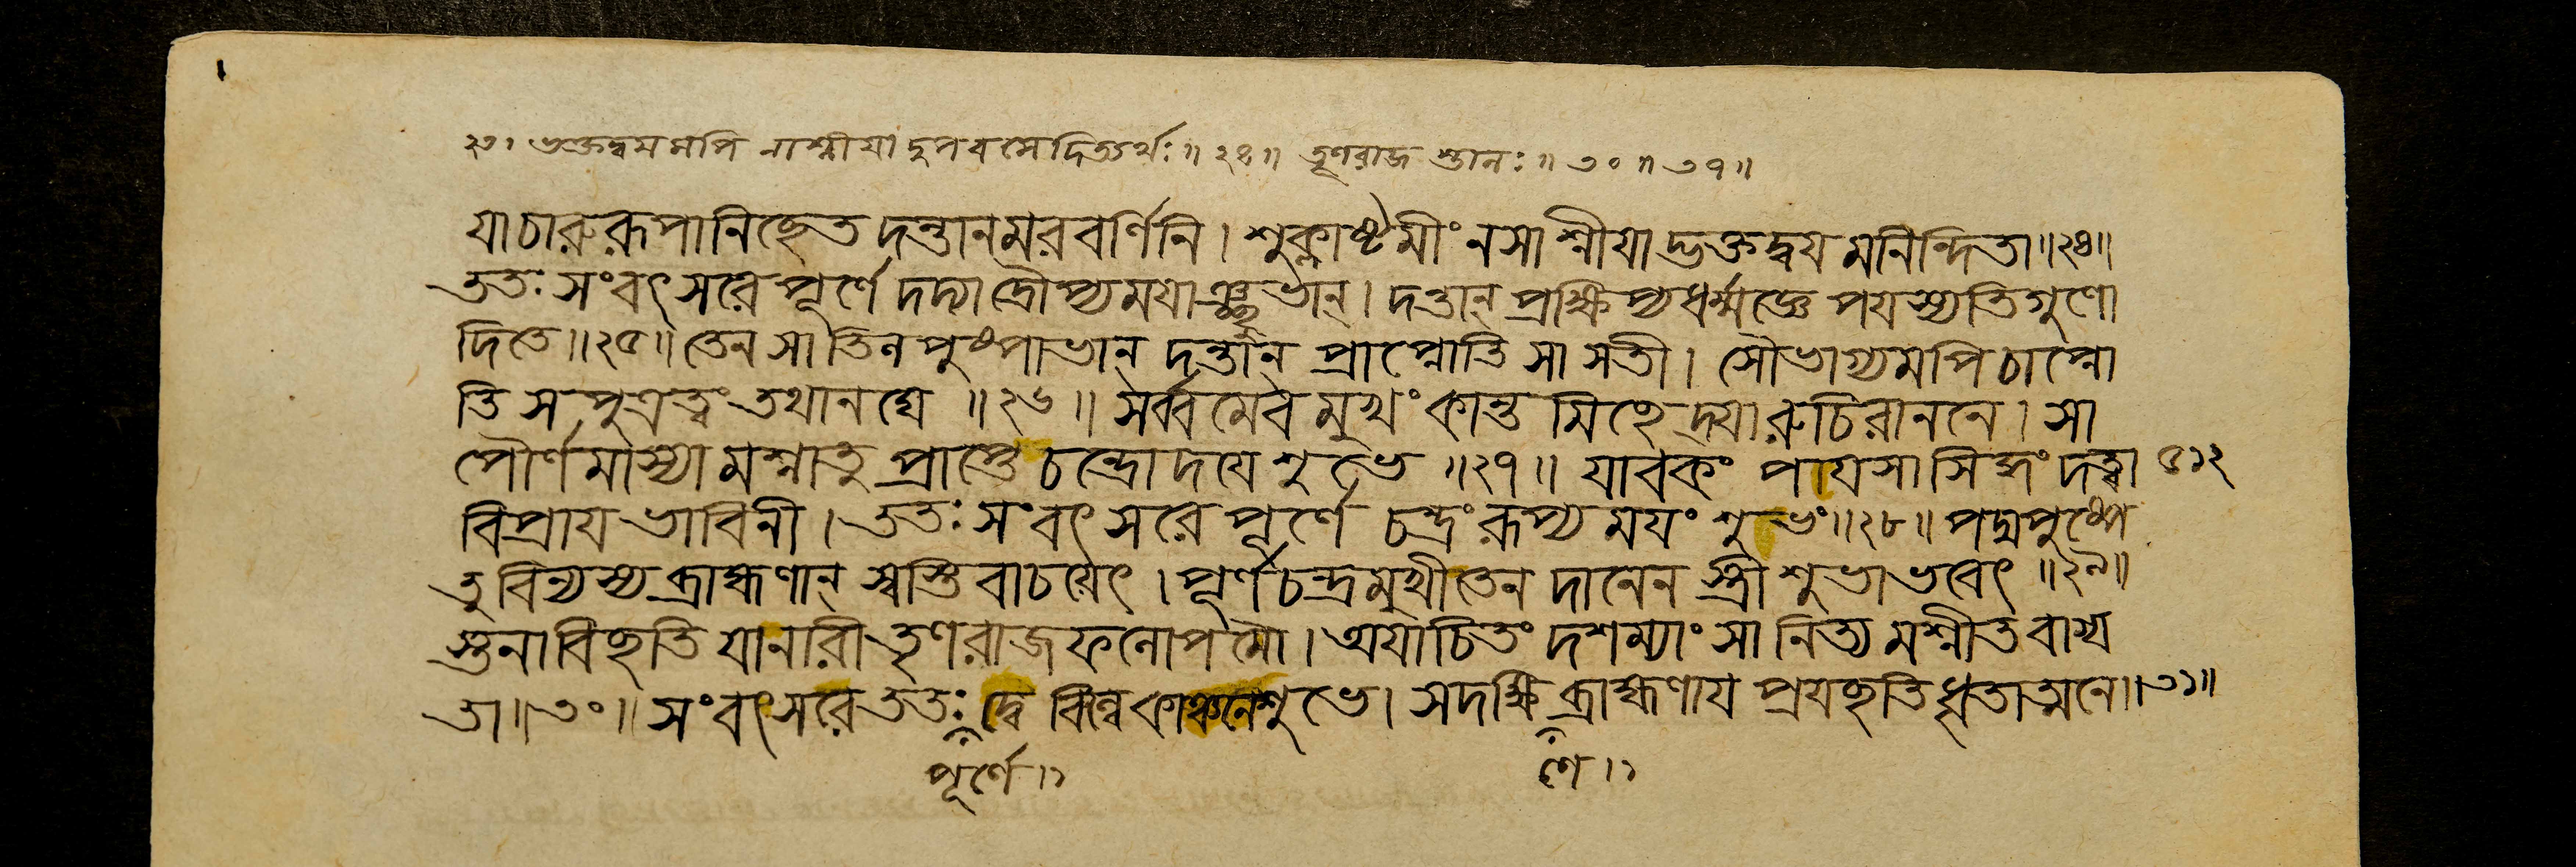 ২৩। ভক্তদ্বয়মপি নাশ্নীয়াদুপবসেদিত্যর্থঃ॥ ২৪॥ তৃণরাজ স্তালঃ॥ ৩০॥ ৩১॥
যাচারুরূপানিছেত দন্তানমরবর্ণিনি। শুক্লাষ্টমীং নসাশ্নীয়াদ্ভক্তদ্বয়মনিন্দিতা॥২৪॥
ততঃ সংবৎসরে পূর্ণে দদ্যাদ্রৌপ্যময়াঞ্ছুভান্। দন্তান্ প্রক্ষিপ্য ধর্ম্মজ্ঞে পয়স্যতিগুণো
দিতে॥২৫॥ তেন সা তিলপুষ্পাভান্ দন্তান্ প্রাপ্নোতি সা সতী। সৌভাগ্যমপি চাপ্নো
তি সপুত্রত্বং তথানঘে ॥২৬॥ সর্ব্বমেব মুখং কান্তমিছেদ্যারুচিরাননে। সা
পৌর্ণমাস্যামশ্নাতু প্রাপ্তে চন্দ্রোদয়ে শুভে ॥২৭॥ যাবকং পায়সাসিদ্ধং দত্ত্বা ৫১২
বিপ্রায় ভাবিনী। ততঃ সংবৎসরে পূর্ণে চন্দ্রং রূপ্যময়ং শুভং॥২৮॥ পদ্মপুষ্পে
তু বিন্যস্য ব্রাহ্মণান্ স্বস্তি বাচয়েৎ। পূর্ণচন্দ্রমুখী তেন দানেন স্ত্রী শুভা ভবেৎ ॥২৯॥
স্তনাবিছতি যা নারী তৃণরাজফলোপমৌ। অযাচিতং দশম্যাং সা নিত্যমশ্নীত বাগ্য
তা॥৩০॥ সংবৎসরে ততঃ দ্বে বিল্বকাঞ্চনে শুভে। সদক্ষি ব্রাহ্মণায় প্রযছতি ধৃতাত্মনে॥৩১॥
পূর্ণে।১ ণে।১